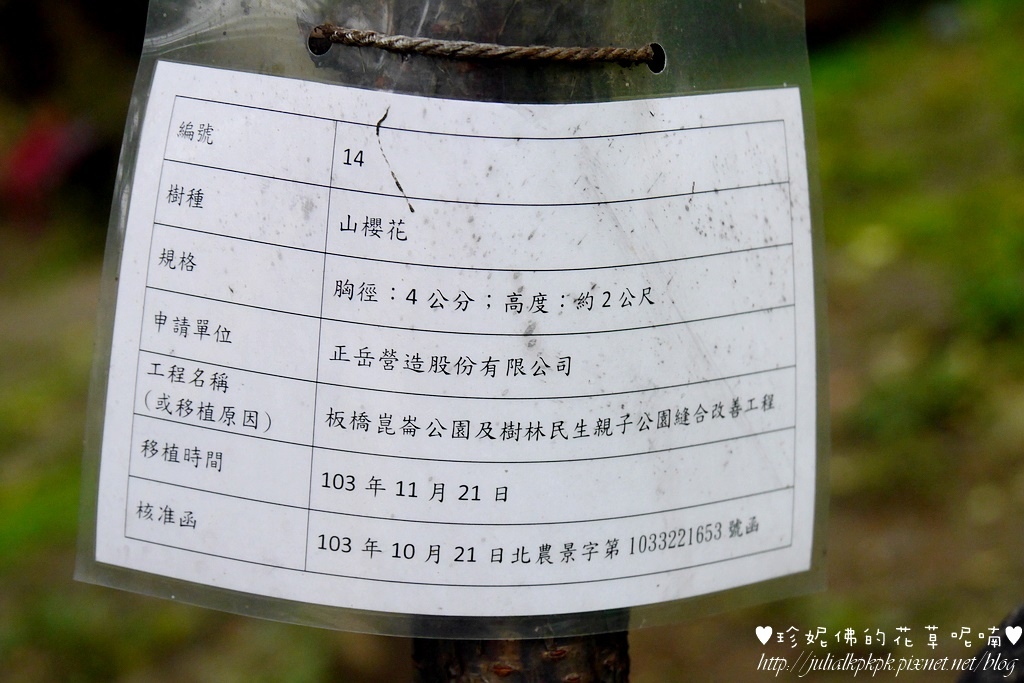 編號 14
樹種 山櫻花
規格 胸徑：4 公分；高度：約 2 公尺
申請單位 正岳營造股份有限公司
工程名稱
(或移植原因) 板橋崑崙公園及樹林民生親子公園縫合改善工程
移植時間 103 年 11 月 21 日
核准函 103 年 10 月 21 日北農景字第 1033221653 號函
♥珍妮佛的花草呢喃♥
http://julialkpkpk.pixnet.net/blog